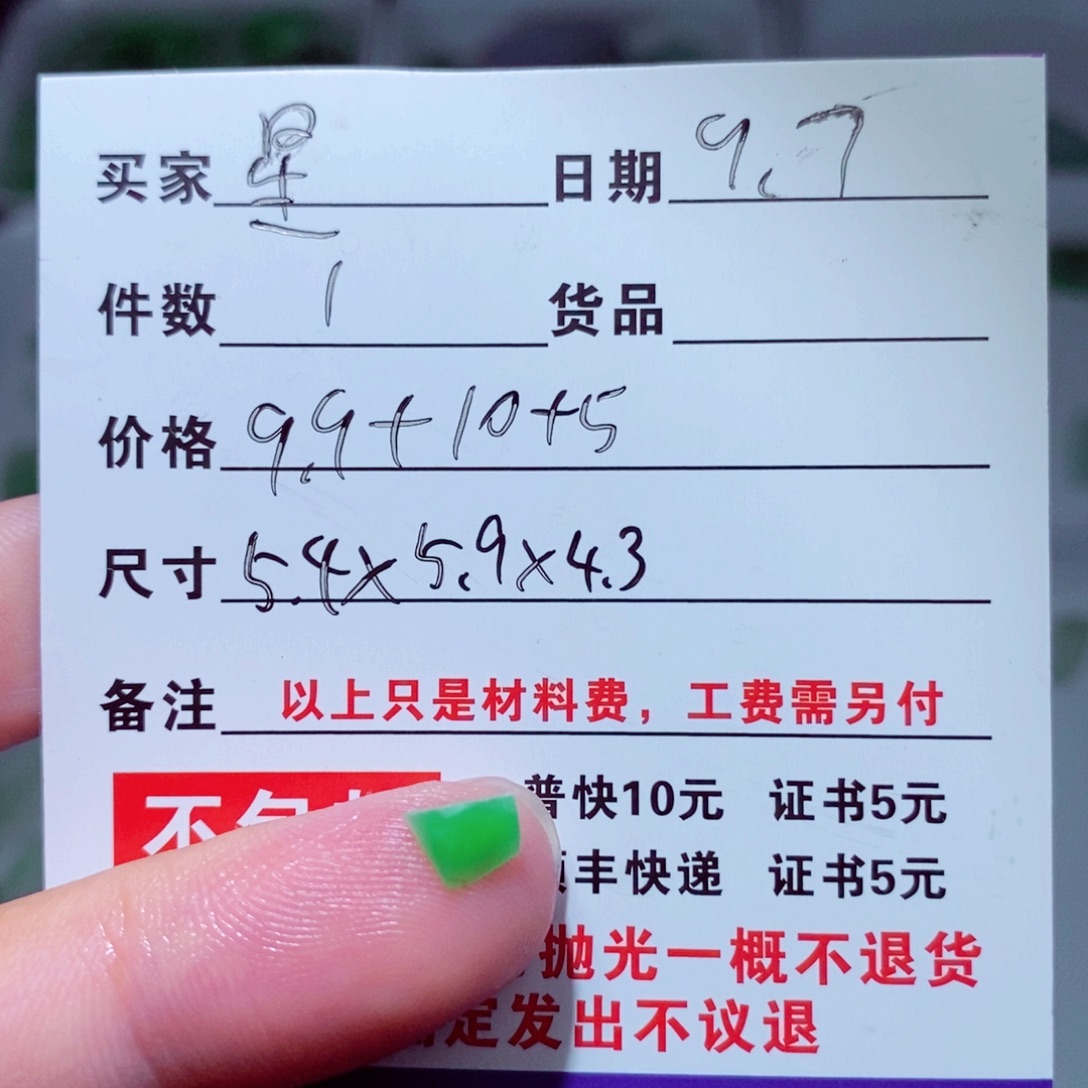 买家 星 日期 9.7
件数 1 货品
价格 9.9+10+5
尺寸 5.4x5.9x4.3
备注 以上只是材料费，工费需另付
普快10元 证书5元
丰快递 证书5元
抛光一概不退货
定发出不议退